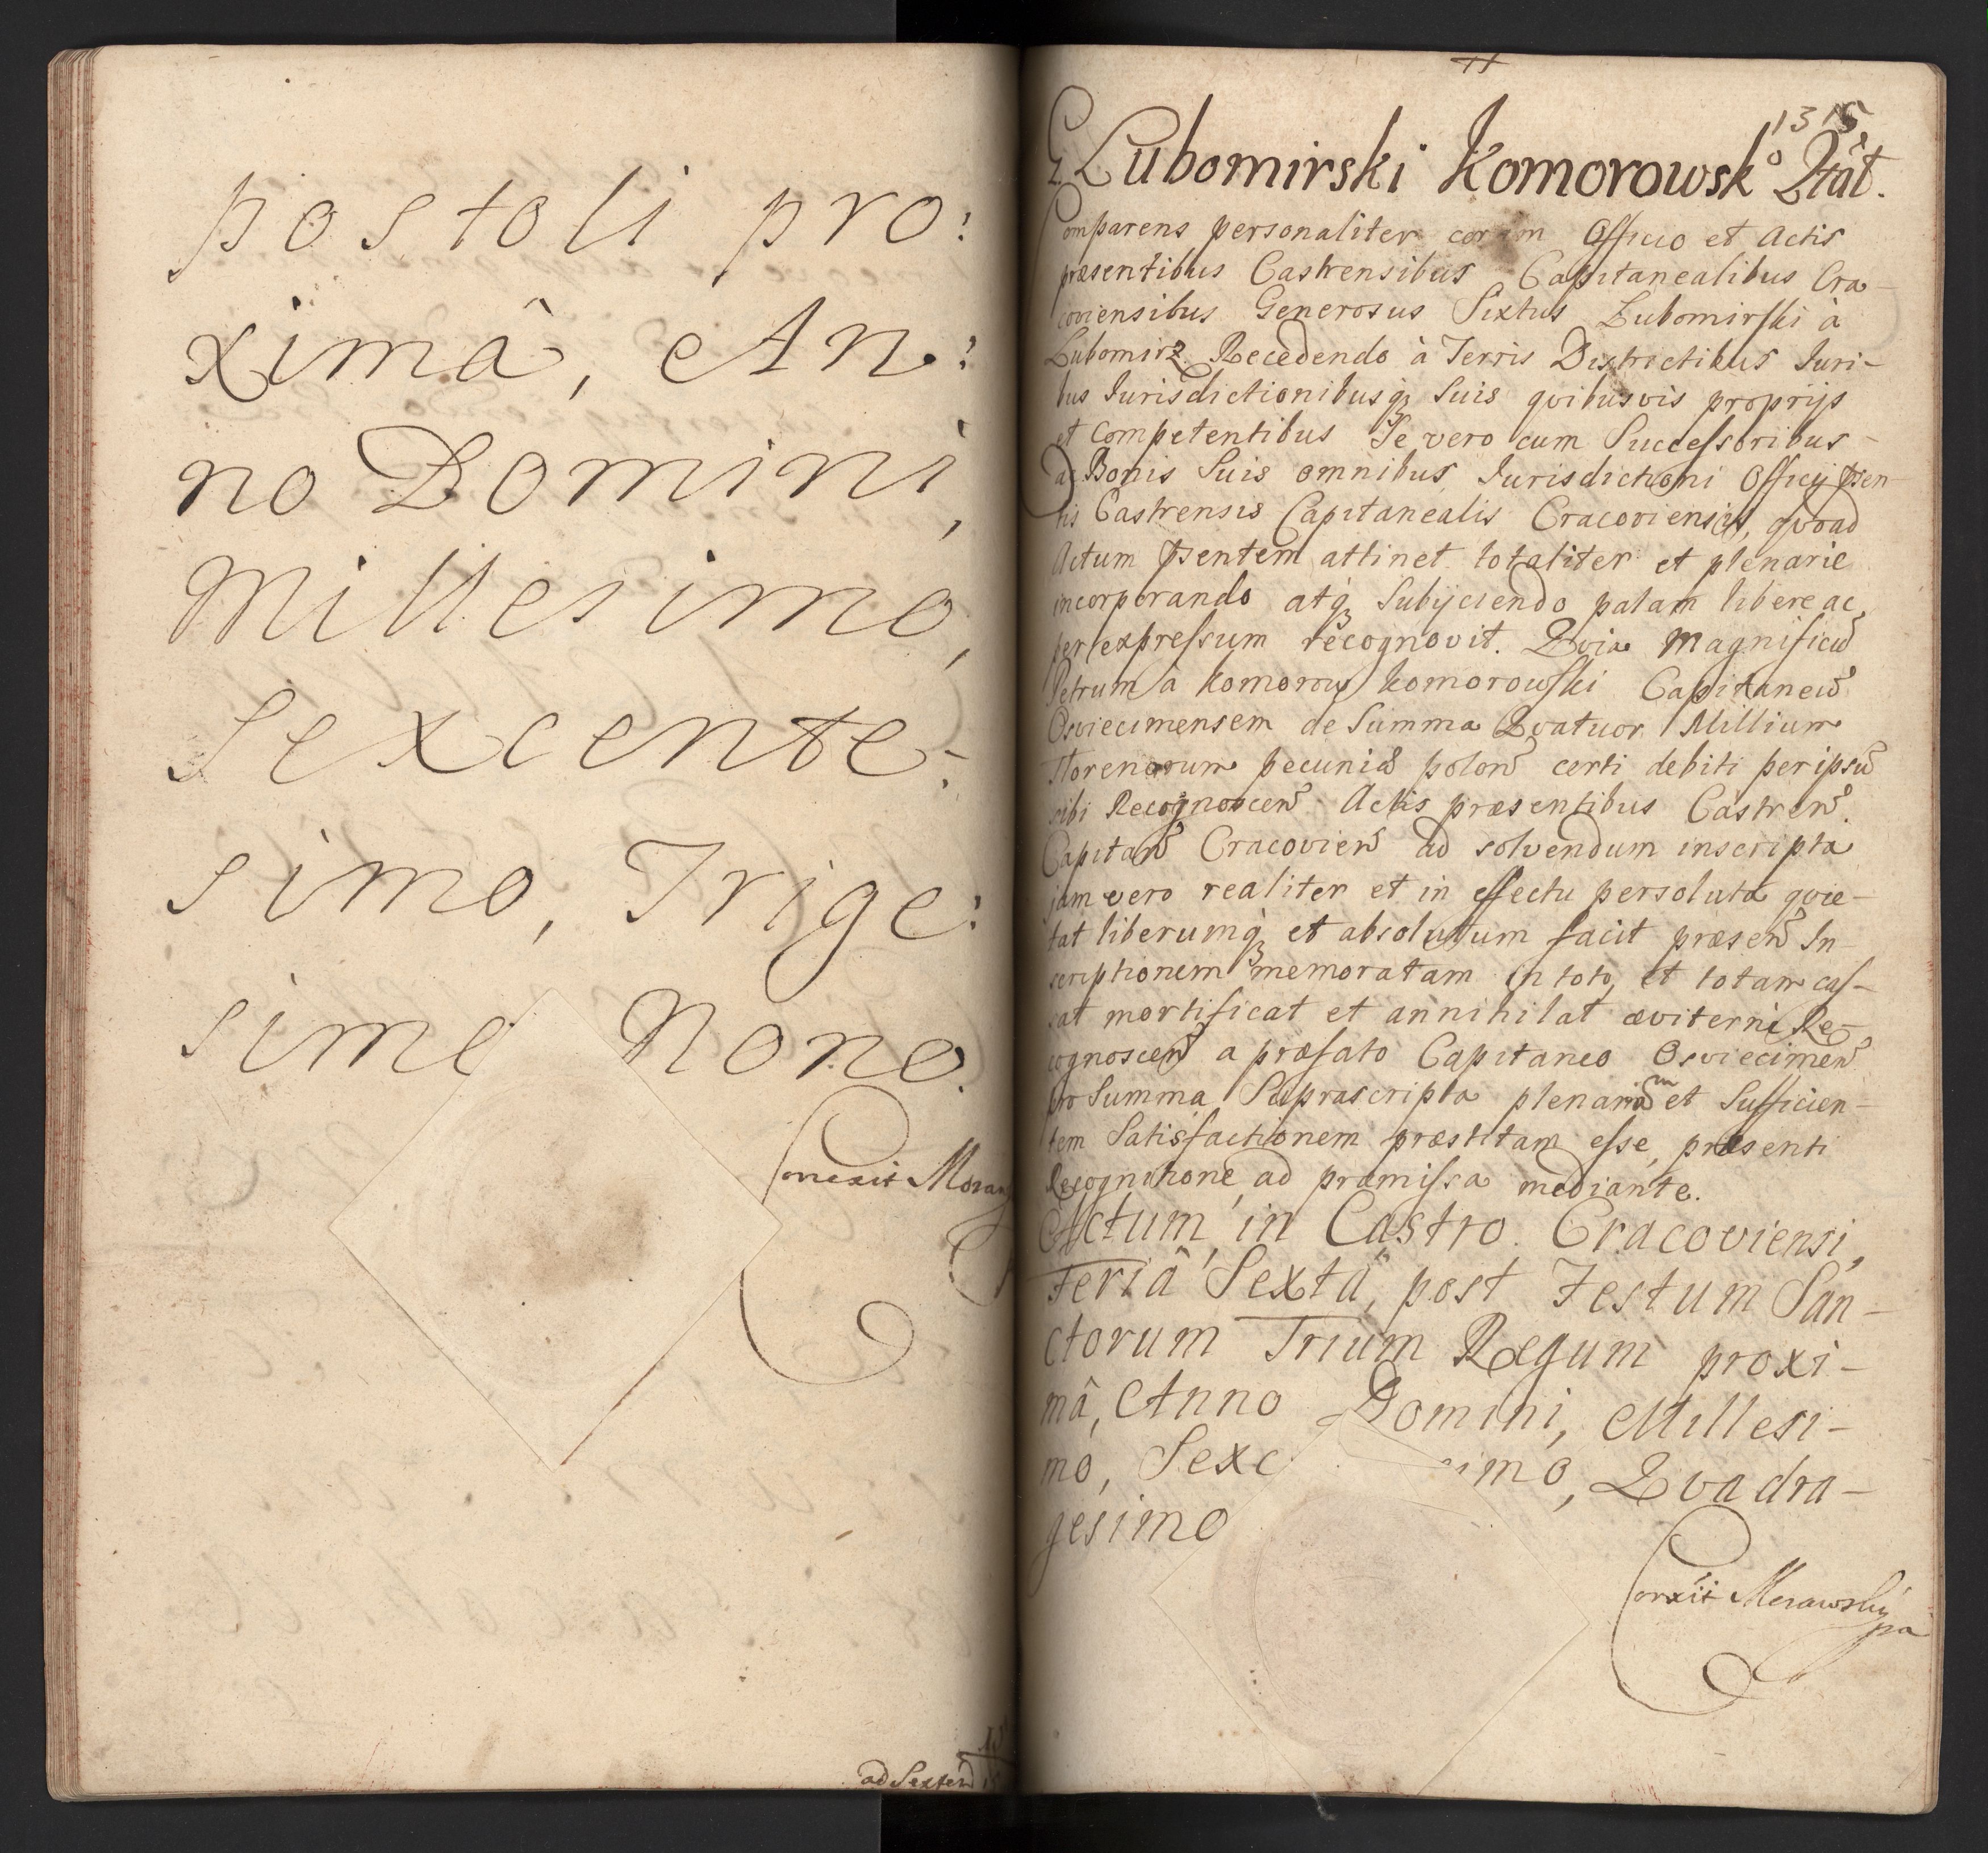 postoli pro:
ximâ, An:
no Domini,
Millesimo,
Sexcente:
simo, Trige:
simo Nono.
ad Sextern
1315
G Lubomirski Komorowsko Qtat.
Comparens personaliter coram Officio et Actis
præsentibus Castrensibus Capitanealibus Cra-
coviensibus Generosus Sixtus Lubomirski à
Lubomirz Recedendo à Terris Districtibus Iuri-
bus Iurisdictionibusq; Suis qvibusvis proprijs
et competentibus Se vero cum Successoribus-
ac Bonis Suis omnibus Iurisdictioni Officij psen-
tis Castrensis Capitanealis Cracoviensis, qvoad
Actum psentem attinet totaliter et plenarie
incorporando atq; Subijciendo palam libere ac
per expressum recognovit. Qvia Magnificũ
Petrum à Komorow Komorowski Capitaneũ
Osviecimensem de Summa Qvatuor Millium
Florenorum pecuniæ polon̄ certi debiti per ipsũ
sibi Recognoscen̄ Actis præsentibus Castren̄.
Capitan̄ Cracovien̄ ad solvendum inscripta
jam vero realiter et in effectu persoluta qvie-
tat liberumq; et absolutum facit præsen̄ In-
scriptionem memoratam in toto et totam cas-
sat mortificat et annihilat æviterne Re-
cognoscen̄ a præfato Capitaneo Osviecimen̄
pro Summa Suprascripta plenariam et Sufficien-
tem Satisfactionem præstitam esse, præsenti
Recognitione ad præmissa mediante.
Actum in Castro Cracoviensi,
Feriâ Sextâ, post Festum San-
ctorum Trium Regum proxi-
mâ, Anno Domini, Millesi-
mo, Sexc imo, Qvadra-
gesimo
Correxit Morawski